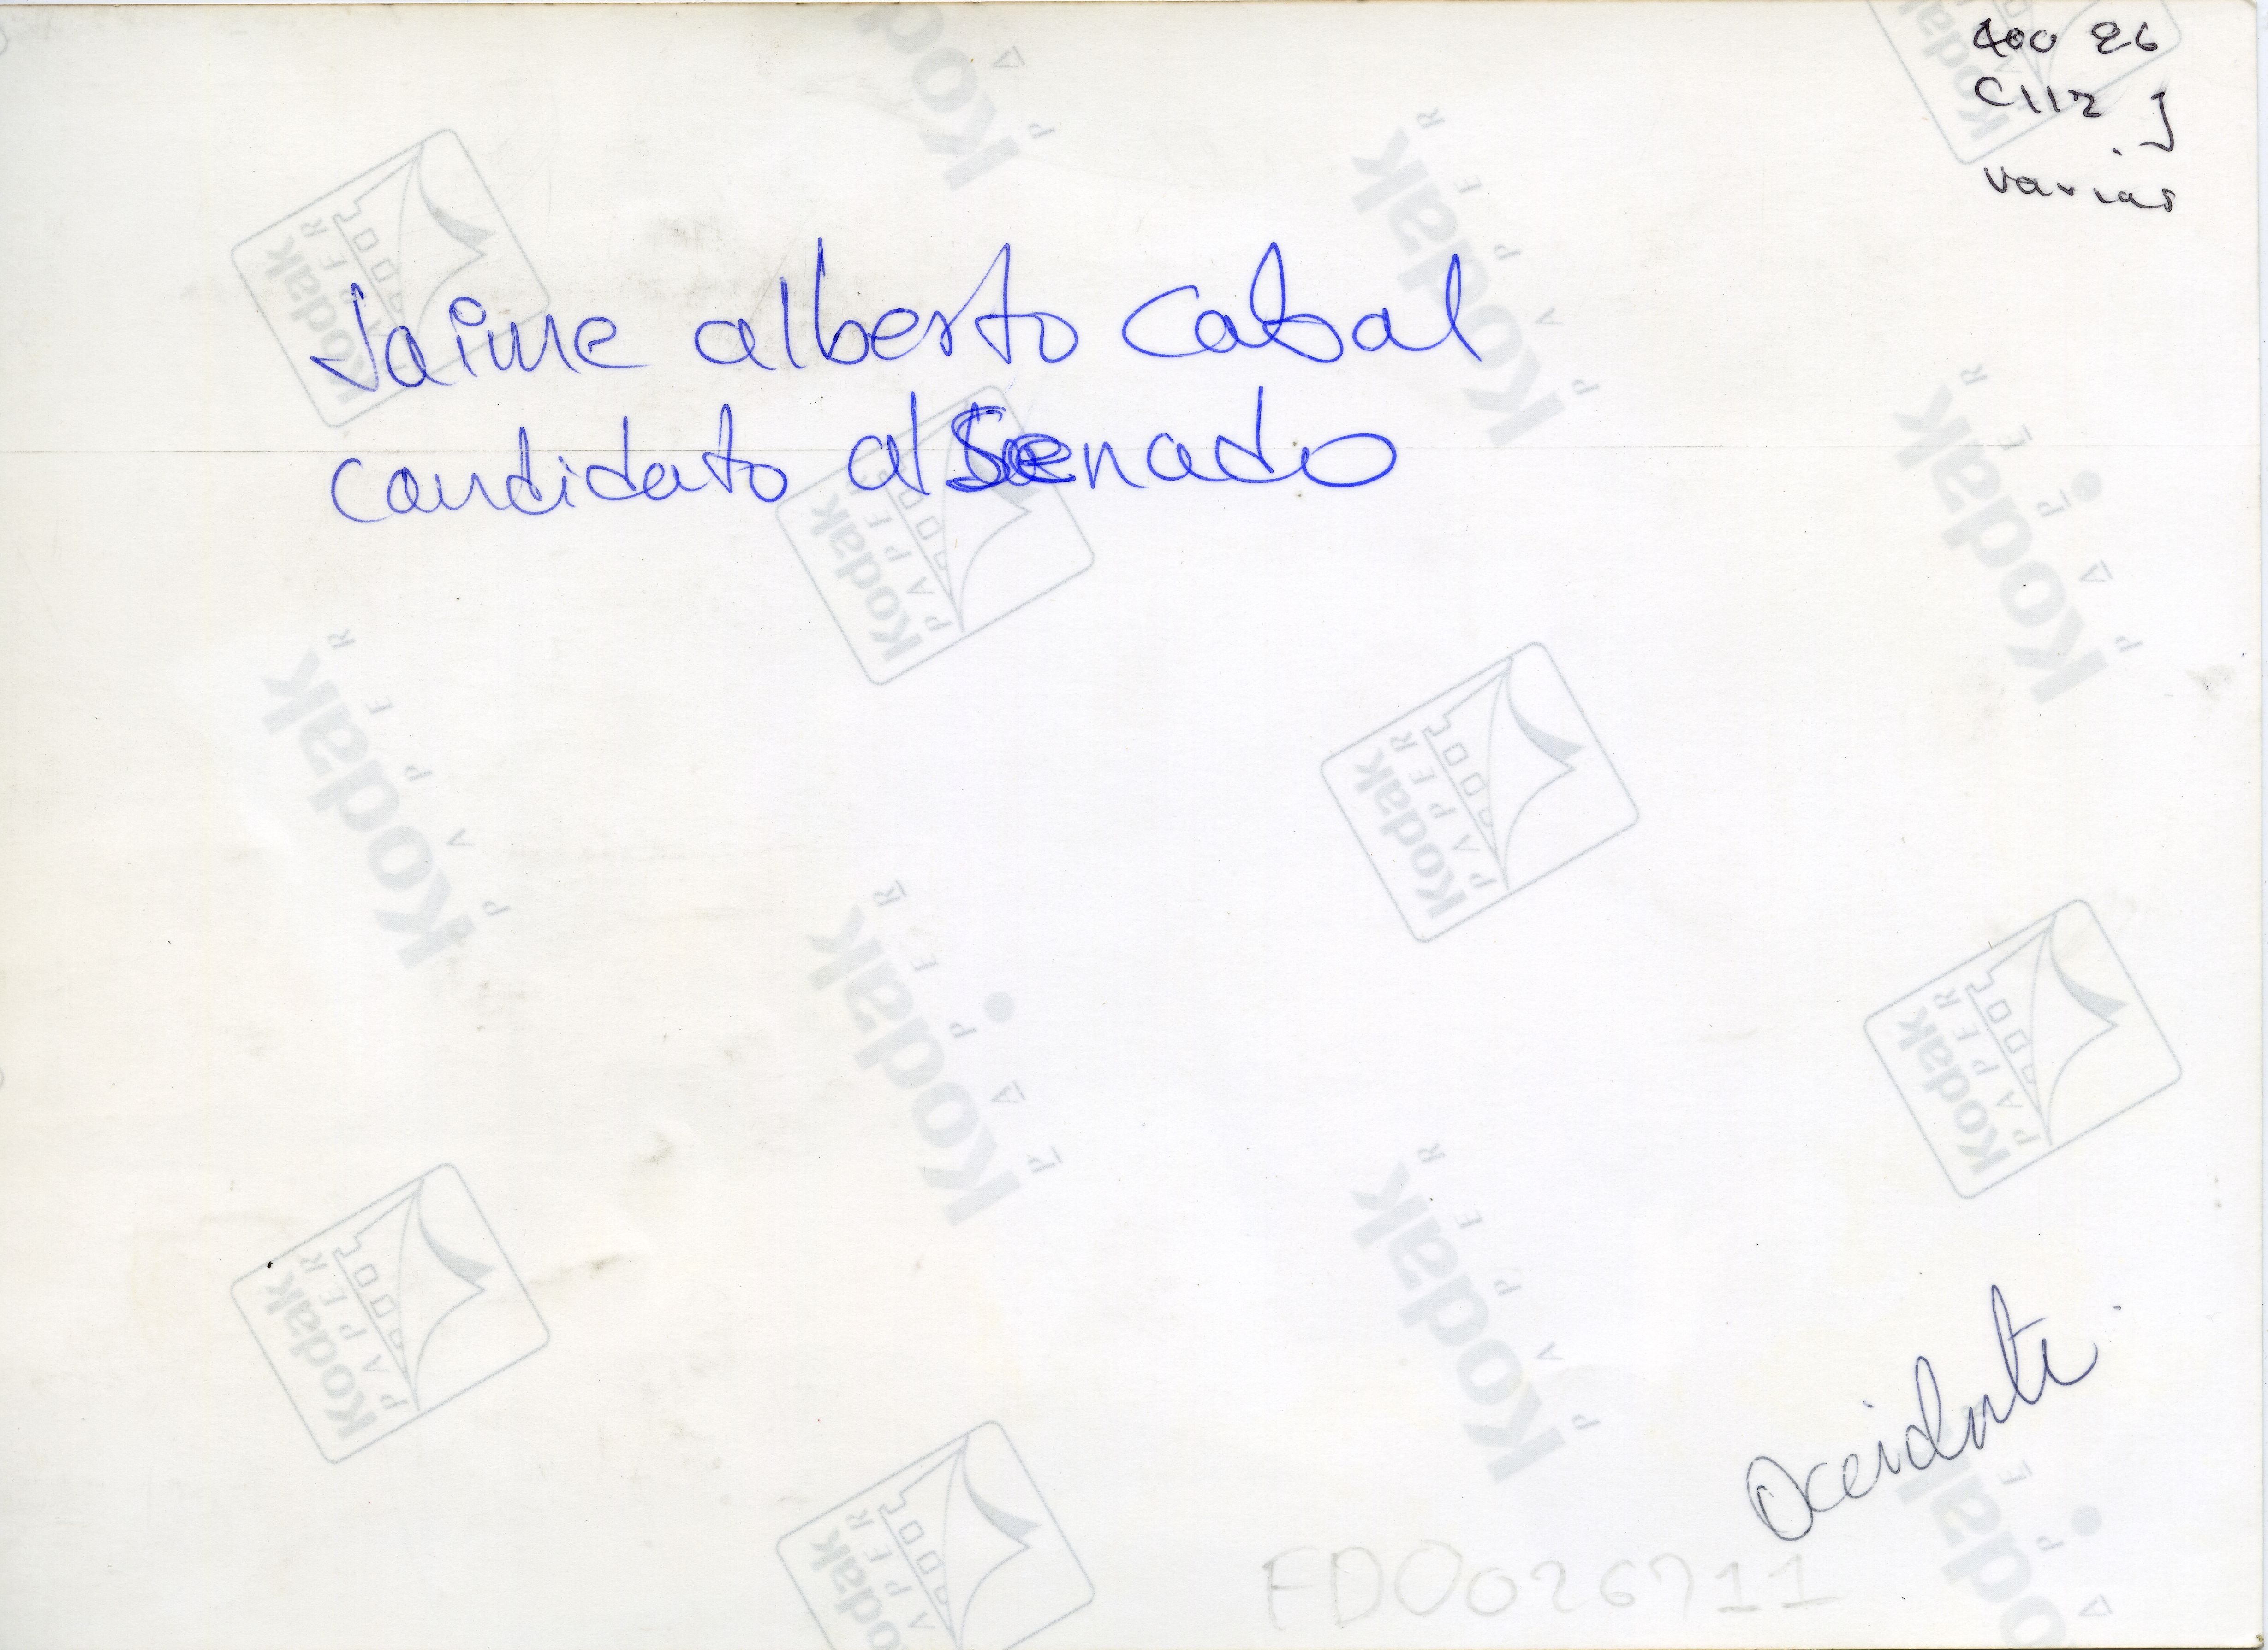 400 26
C112 J
varias
Jaime alberto Cabal
candidato al Senado
Occidente
FDO026711
Kodak
PAPER